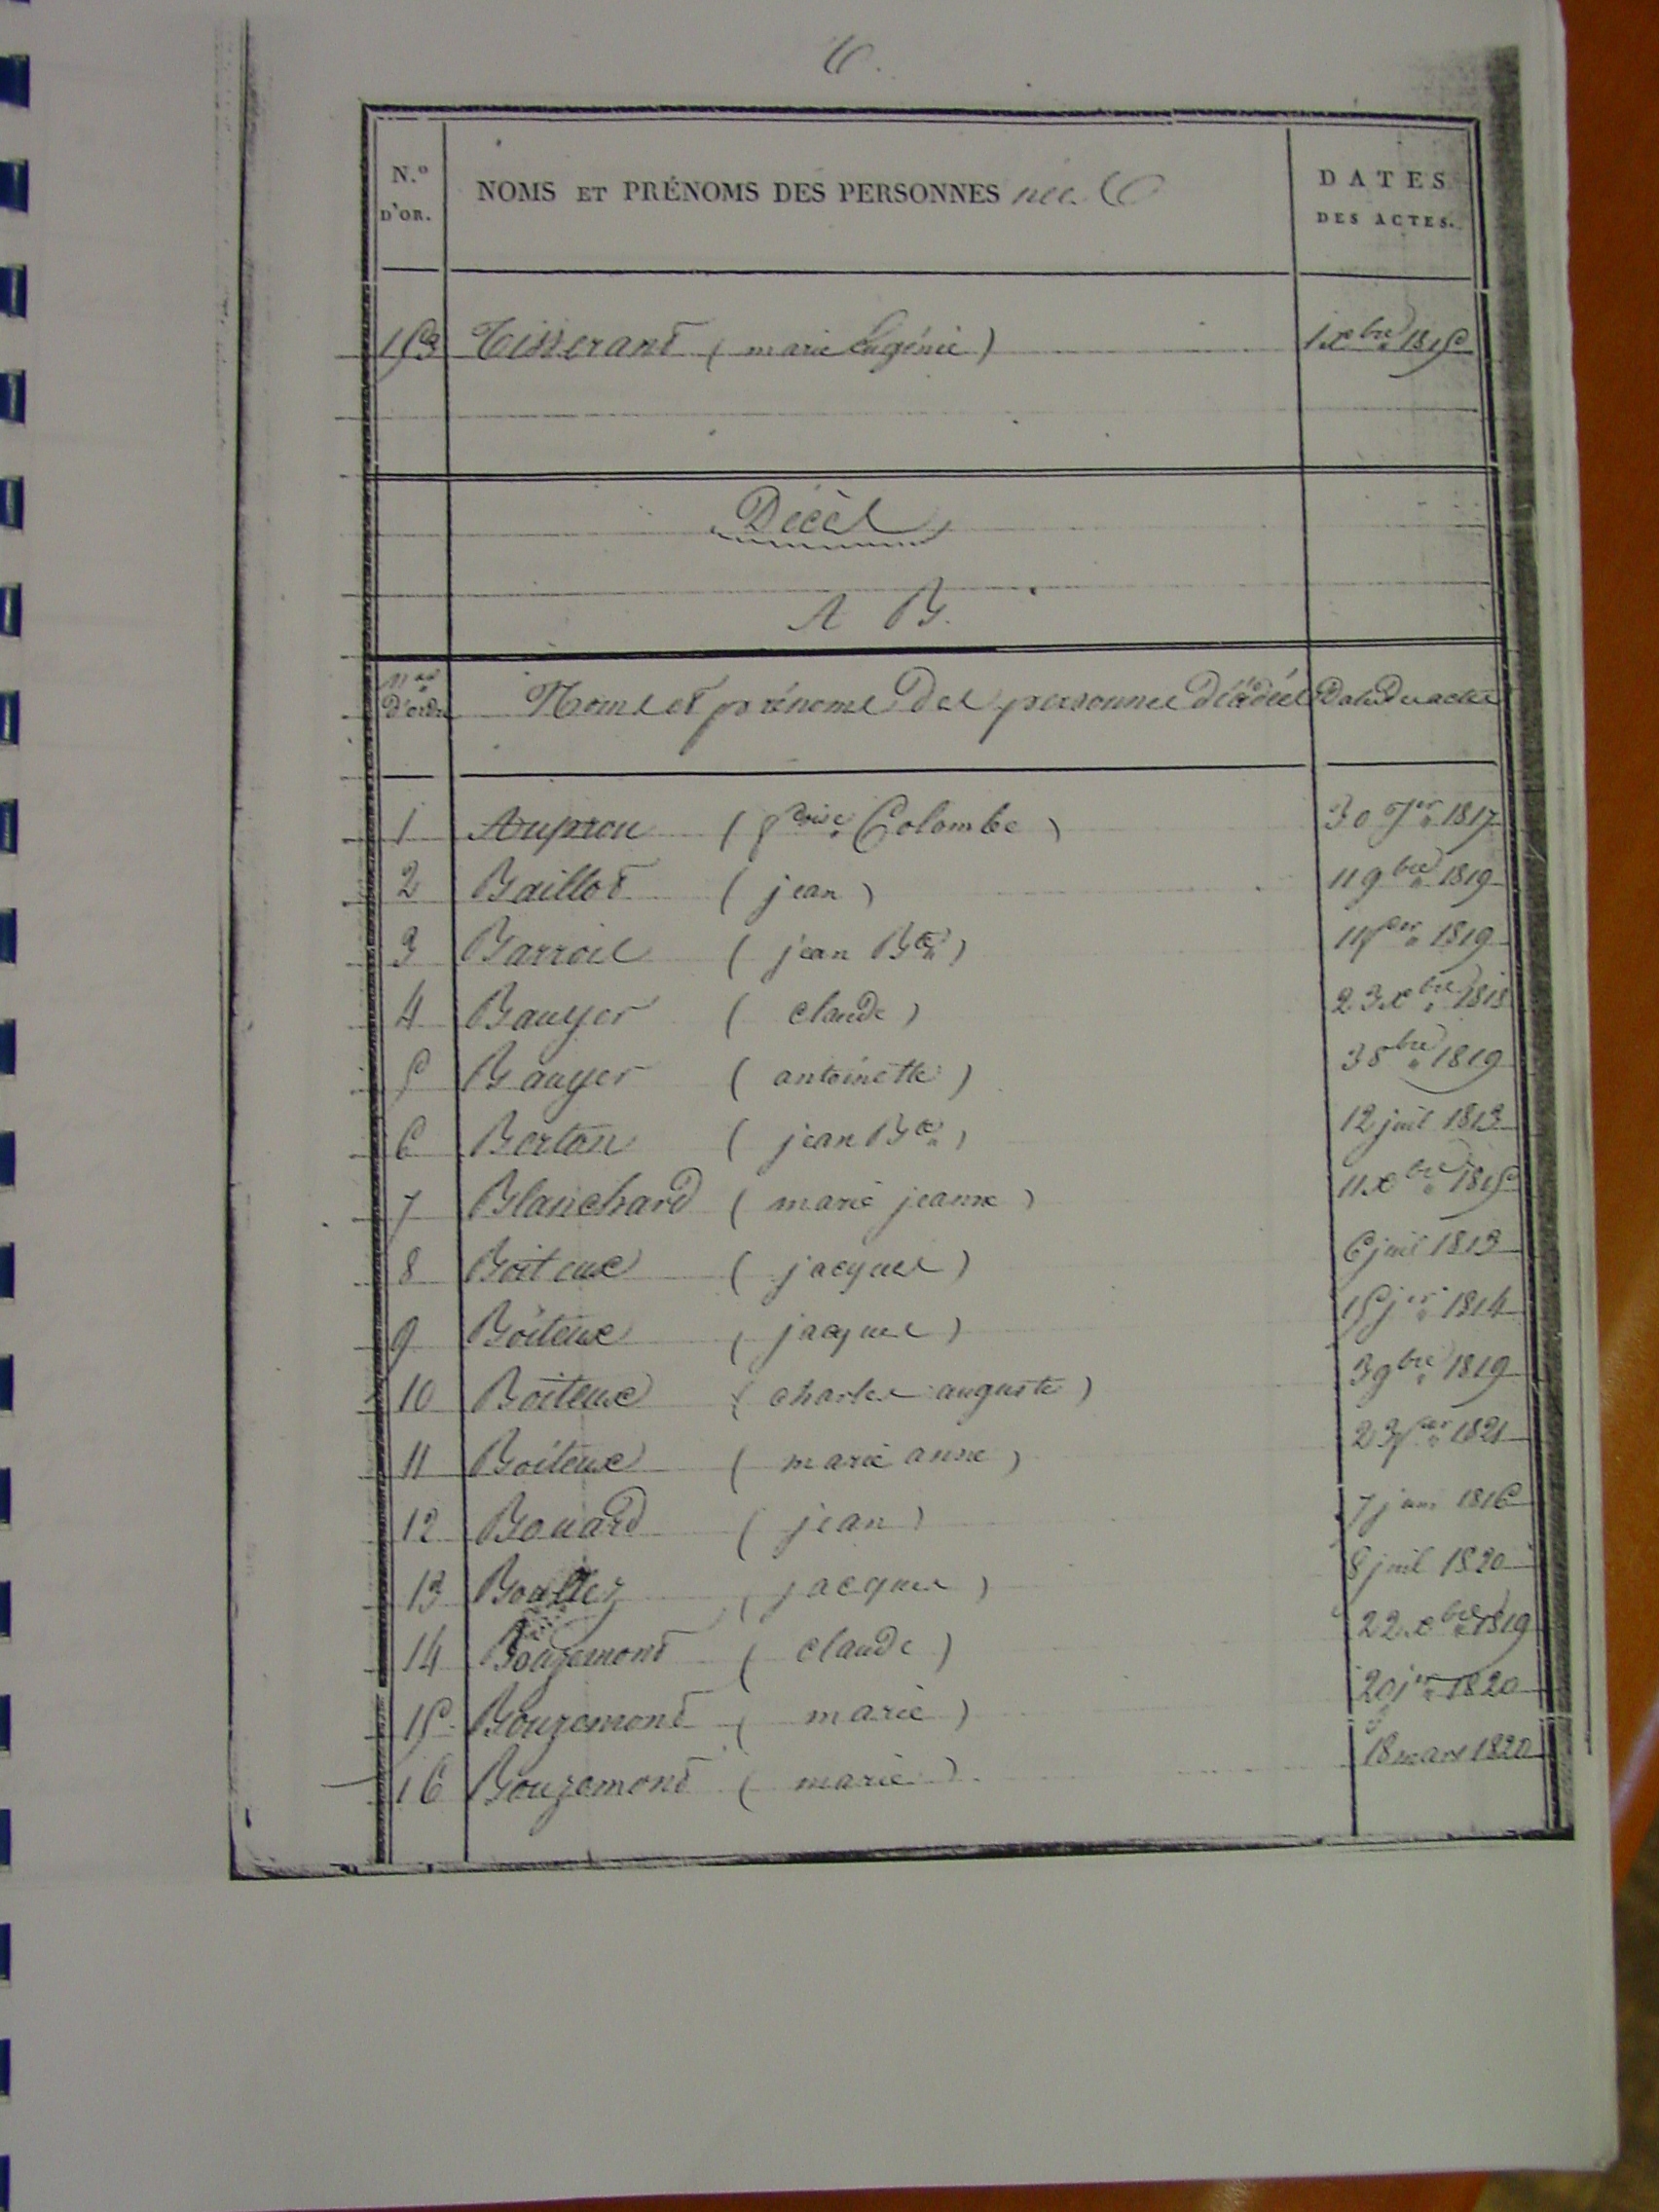 6.
N.º D'OR. NOMS ET PRÉNOMS DES PERSONNES née. DATES DES ACTES.
153 Tisserand ( marie Eugénie ) 1 xbre 1815
Décès
A B.
Nos d'ordre Noms et prénoms Des personnes Décédées Dates Des actes
1 Auprou ( fcoise Colombe ) 30 Jer 1817
2 Baillot ( jean ) 11 9bre 1819
3 Barrois ( jean Bte ) 1819
4 Bauyer ( claude ) 23 xbre 1818
5 Bauyer ( antoinette ) 3 8bre 1819
6 Berton ( jean Bte ) 12 juil 1813
7 Blanchard ( marie jeanne ) 11 xbre 1815
8 Boiteux ( jacques ) 6 juil 1813
9 Boiteux ( jacques ) 15 jer 1814
10 Boiteux ( charles auguste ) 3 9bre 1819
11 Boiteux ( marie anne ) 23 1821
12 Bouard ( jean ) 7 1816
13 ( jacques ) 8 juil 1820
14 Bouzemond ( claude ) 22 xbre 1819
15 Bouzemond ( marie ) 20 jer 1820
16 Bouzemond ( marie ) 18 mars 1820